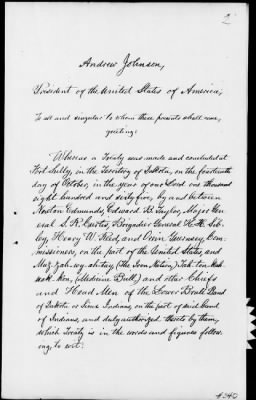 2
Andrew Johnson,
President of the United States of America,
To all and singular to whom these presents shall come,
greeting:
Whereas a Treaty was made and concluded at
Fort Sully, in the Territory of Dakota, on the fourteenth
day of October, in the year of our Lord one thousand
eight hundred and sixty five, by and between
Newton Edmunds, Edward B. Taylor, Major Gen-
eral S. R. Curtis, Brigadier General H. H. Sib-
ley, Henry W. Reed, and Orrin Guernsey, Com-
missioners, on the part of the United States, and
Muz-zah-wy-ah-tay (the Iron Nation), Tah-ton-kah-
wak-kon, (Medicine Bull,) and other Chiefs
and Head Men of the Lower Brulé Band
of Dakota or Sioux Indians, on the part of said Band
of Indians, and duly authorized thereto by them,
which Treaty is in the words and figures follow-
ing, to wit: